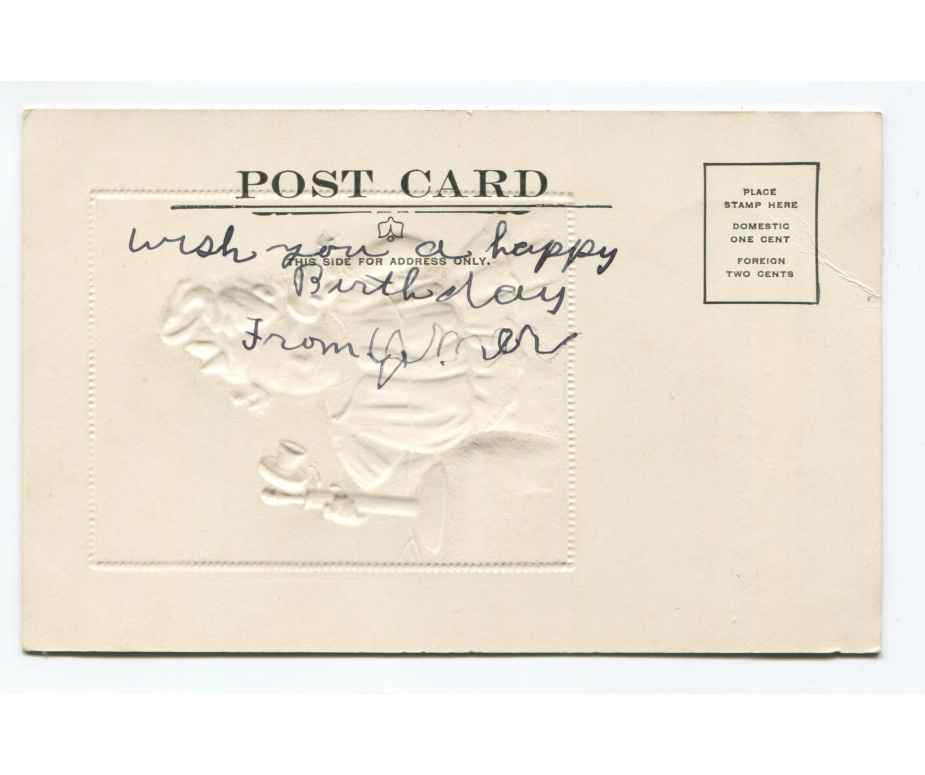 POST CARD
THIS SIDE FOR ADDRESS ONLY.
wish you a happy
Birthday
From
PLACE
STAMP HERE
DOMESTIC
ONE CENT
FOREIGN
TWO CENTS